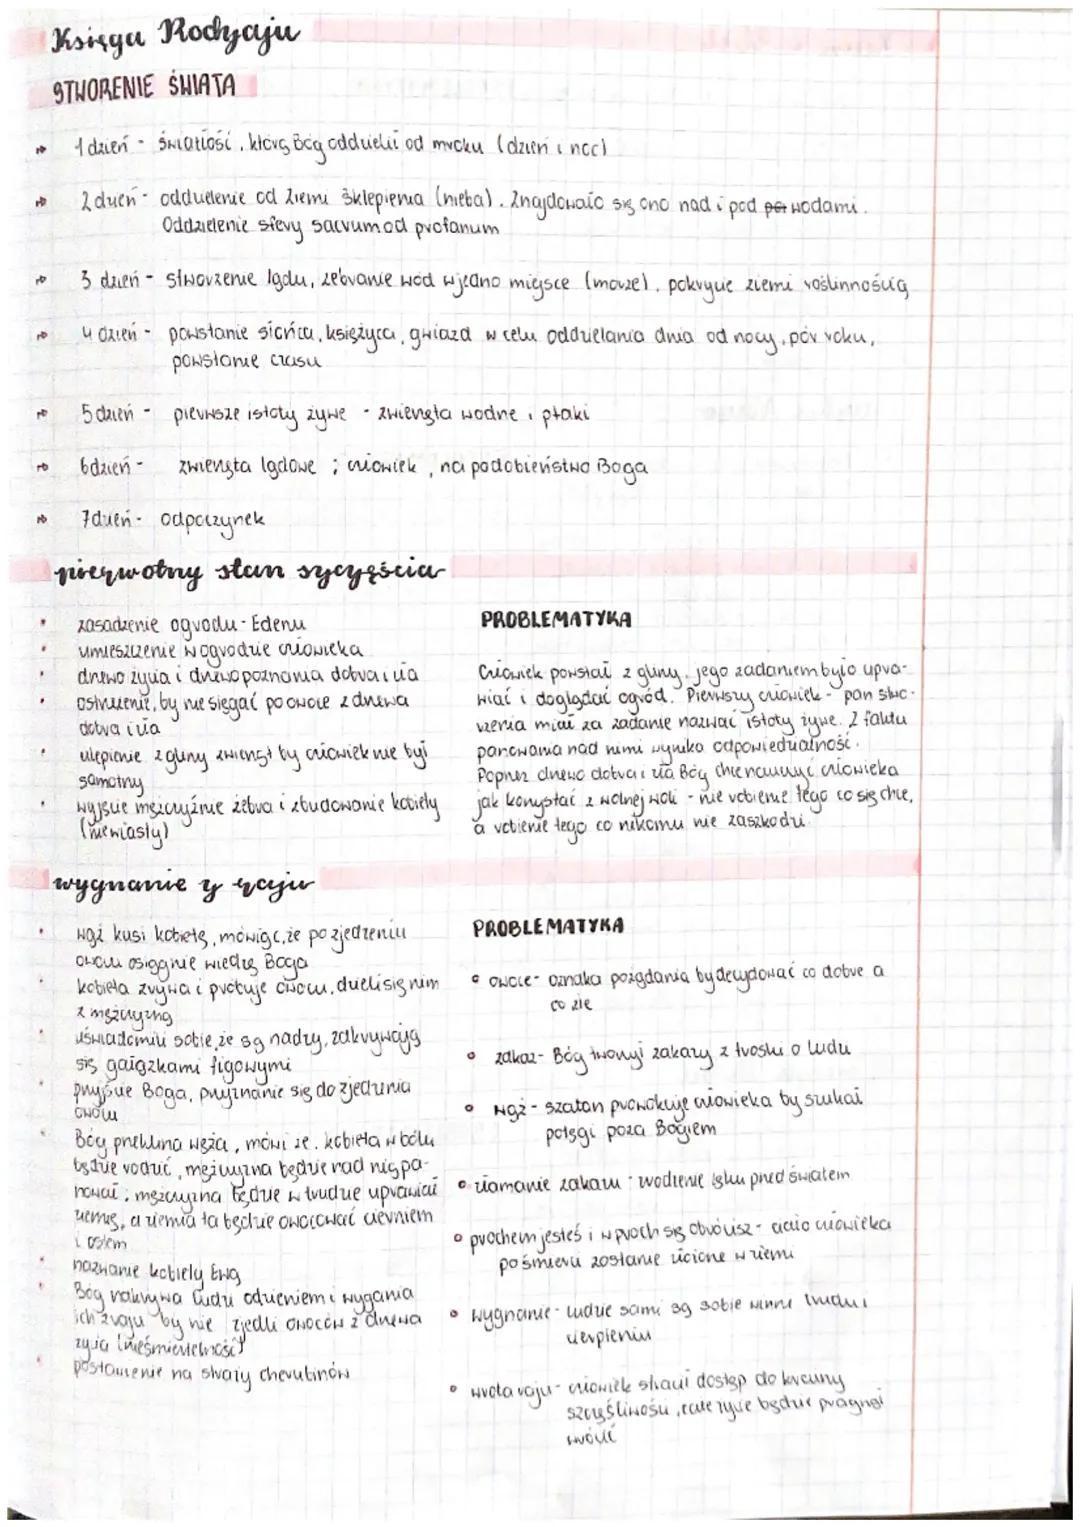 Księga Rodzaju
STWORENIE ŚWIATA
1 dzień - światłość, którą Bóg oddzielił od mroku (dzień i noc)
2 dzień - oddzielenie od Ziemi Sklepienia (nieba). Znajdowało się ono nad i pod wodami.
Oddzielenie sfery sacrum od profanum
3 dzień - stworzenie lądu, zebranie wód w jedno miejsce (morze), pokrycie ziemi roślinnością
4 dzień - powstanie słońca, księżyca, gwiazd w celu oddzielania dnia od nocy, pór roku,
powstanie czasu
5 dzień - pierwsze istoty żywe - zwierzęta wodne i ptaki
6 dzień - zwierzęta lądowe ; człowiek, na podobieństwo Boga
7 dzień - odpoczynek
pierwotny stan szczęścia
zasadzenie ogrodu - Edenu
umieszczenie w ogrodzie człowieka
drzewo życia i drzewo poznania dobra i zła
ostrzeżenie, by nie sięgać po owoce z drzewa
dobra i zła
ulepienie z gliny zwierząt by człowiek nie był
samotny
wyjęcie mężczyźnie żebra i zbudowanie kobiety
(niewiasty)
PROBLEMATYKA
Człowiek powstał z gliny, jego zadaniem było upra-
wiać i doglądać ogród. Pierwszy człowiek - pan stwo-
rzenia miał za zadanie nazwać istoty żywe. Z faktu
panowania nad nimi wynika odpowiedzialność.
Poprzez drzewo dobra i zła Bóg chce nauczyć człowieka
jak korzystać z wolnej woli - nie robienie tego co się chce,
a robienie tego co nikomu nie zaszkodzi
wygnanie z raju
wąż kusi kobietę, mówiąc, że po zjedzeniu
owocu osiągnie wiedzę Boga
kobieta zrywa i próbuje owocu, dzieli się nim
z mężczyzną
uświadomili sobie, że są nadzy, zakrywają
się gałązkami figowymi
przyjście Boga, przyznanie się do zjedzenia
owocu
Bóg przeklina węża, mówi że kobieta w bólu
będzie rodzić, mężczyzna będzie nad nią pa-
nował; mężczyzna będzie w trudzie uprawiał
ziemię, a ziemia ta będzie owocować cierniem
i ostem
nazwanie kobiety Ewą
Bóg okrywa ludzi odzieniem i wygania
ich z raju by nie zjedli owoców z drzewa
życia (nieśmiertelność)
postawienie na straży cherubinów
PROBLEMATYKA
owoce - oznaka pożądania by decydować co dobre a
co złe
zakaz - Bóg tworzy zakazy z troski o ludzi
wąż - szatan prowokuje człowieka by szukał
potęgi poza Bogiem
złamanie zakazu : wrodzenie lęku przed światem
prochem jesteś i w proch się obrócisz - ciało człowieka
po śmierci zostanie złożone w ziemi
wygnanie - ludzie sami są sobie winni trudu i
cierpieniu
wrota raju - człowiek stracił dostęp do krainy
szczęśliwości, całe życie będzie pragnął
wrócić